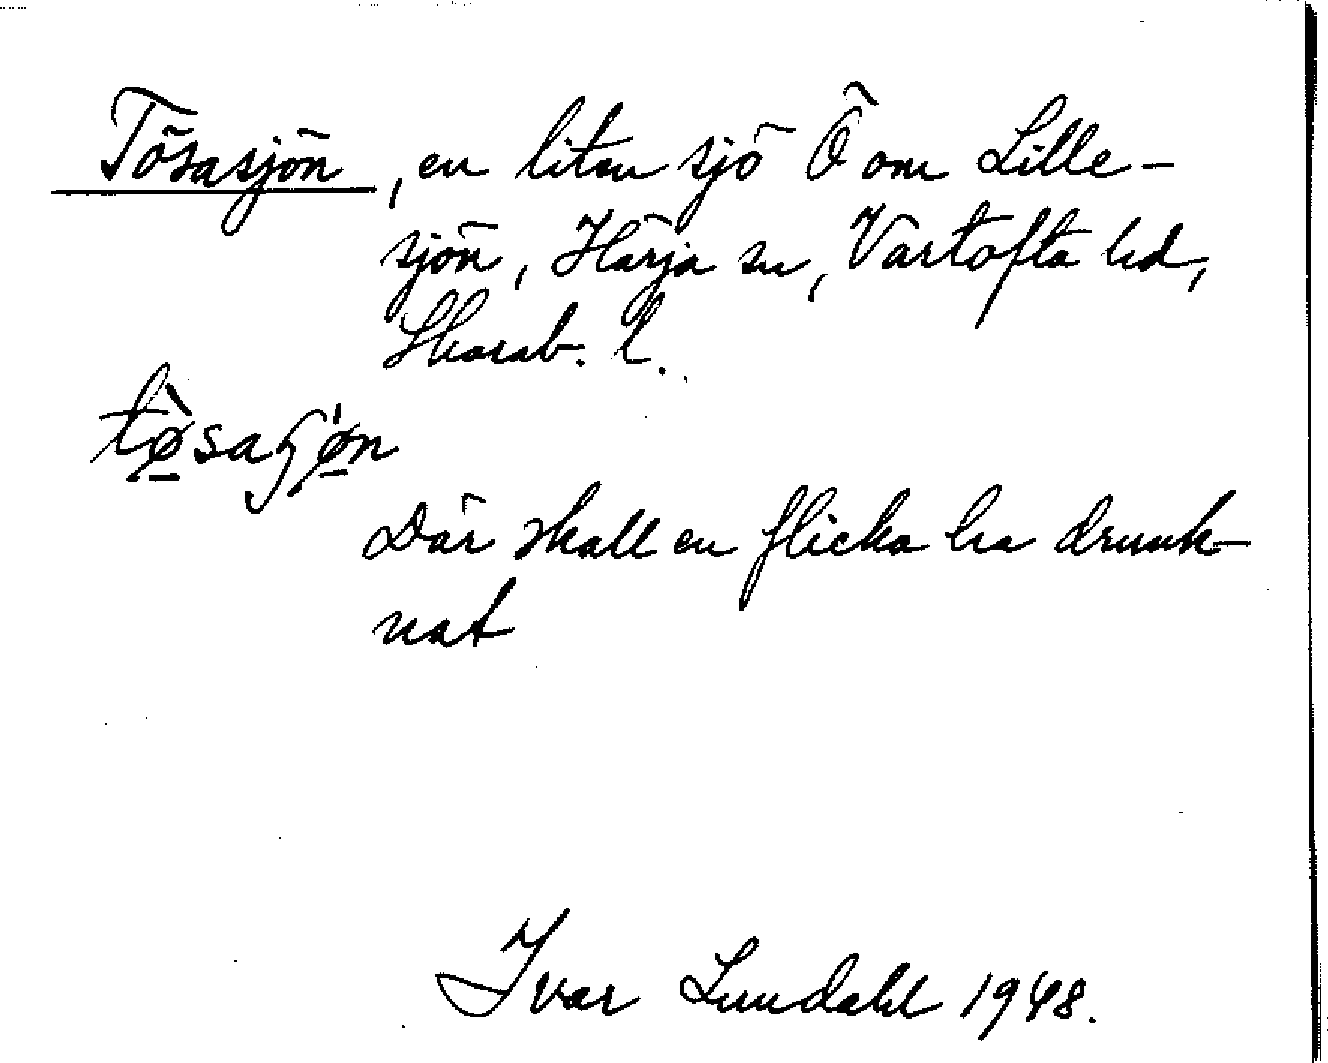 Tösasjön, en liten sjö Ö om Lille-
sjön, Härja sn, Vartofta hd,
Skarab. l.
tø̲̀saʃǿ̲n
Där skall en flicka ha drunk-
nat
Ivar Lundahl 1948.